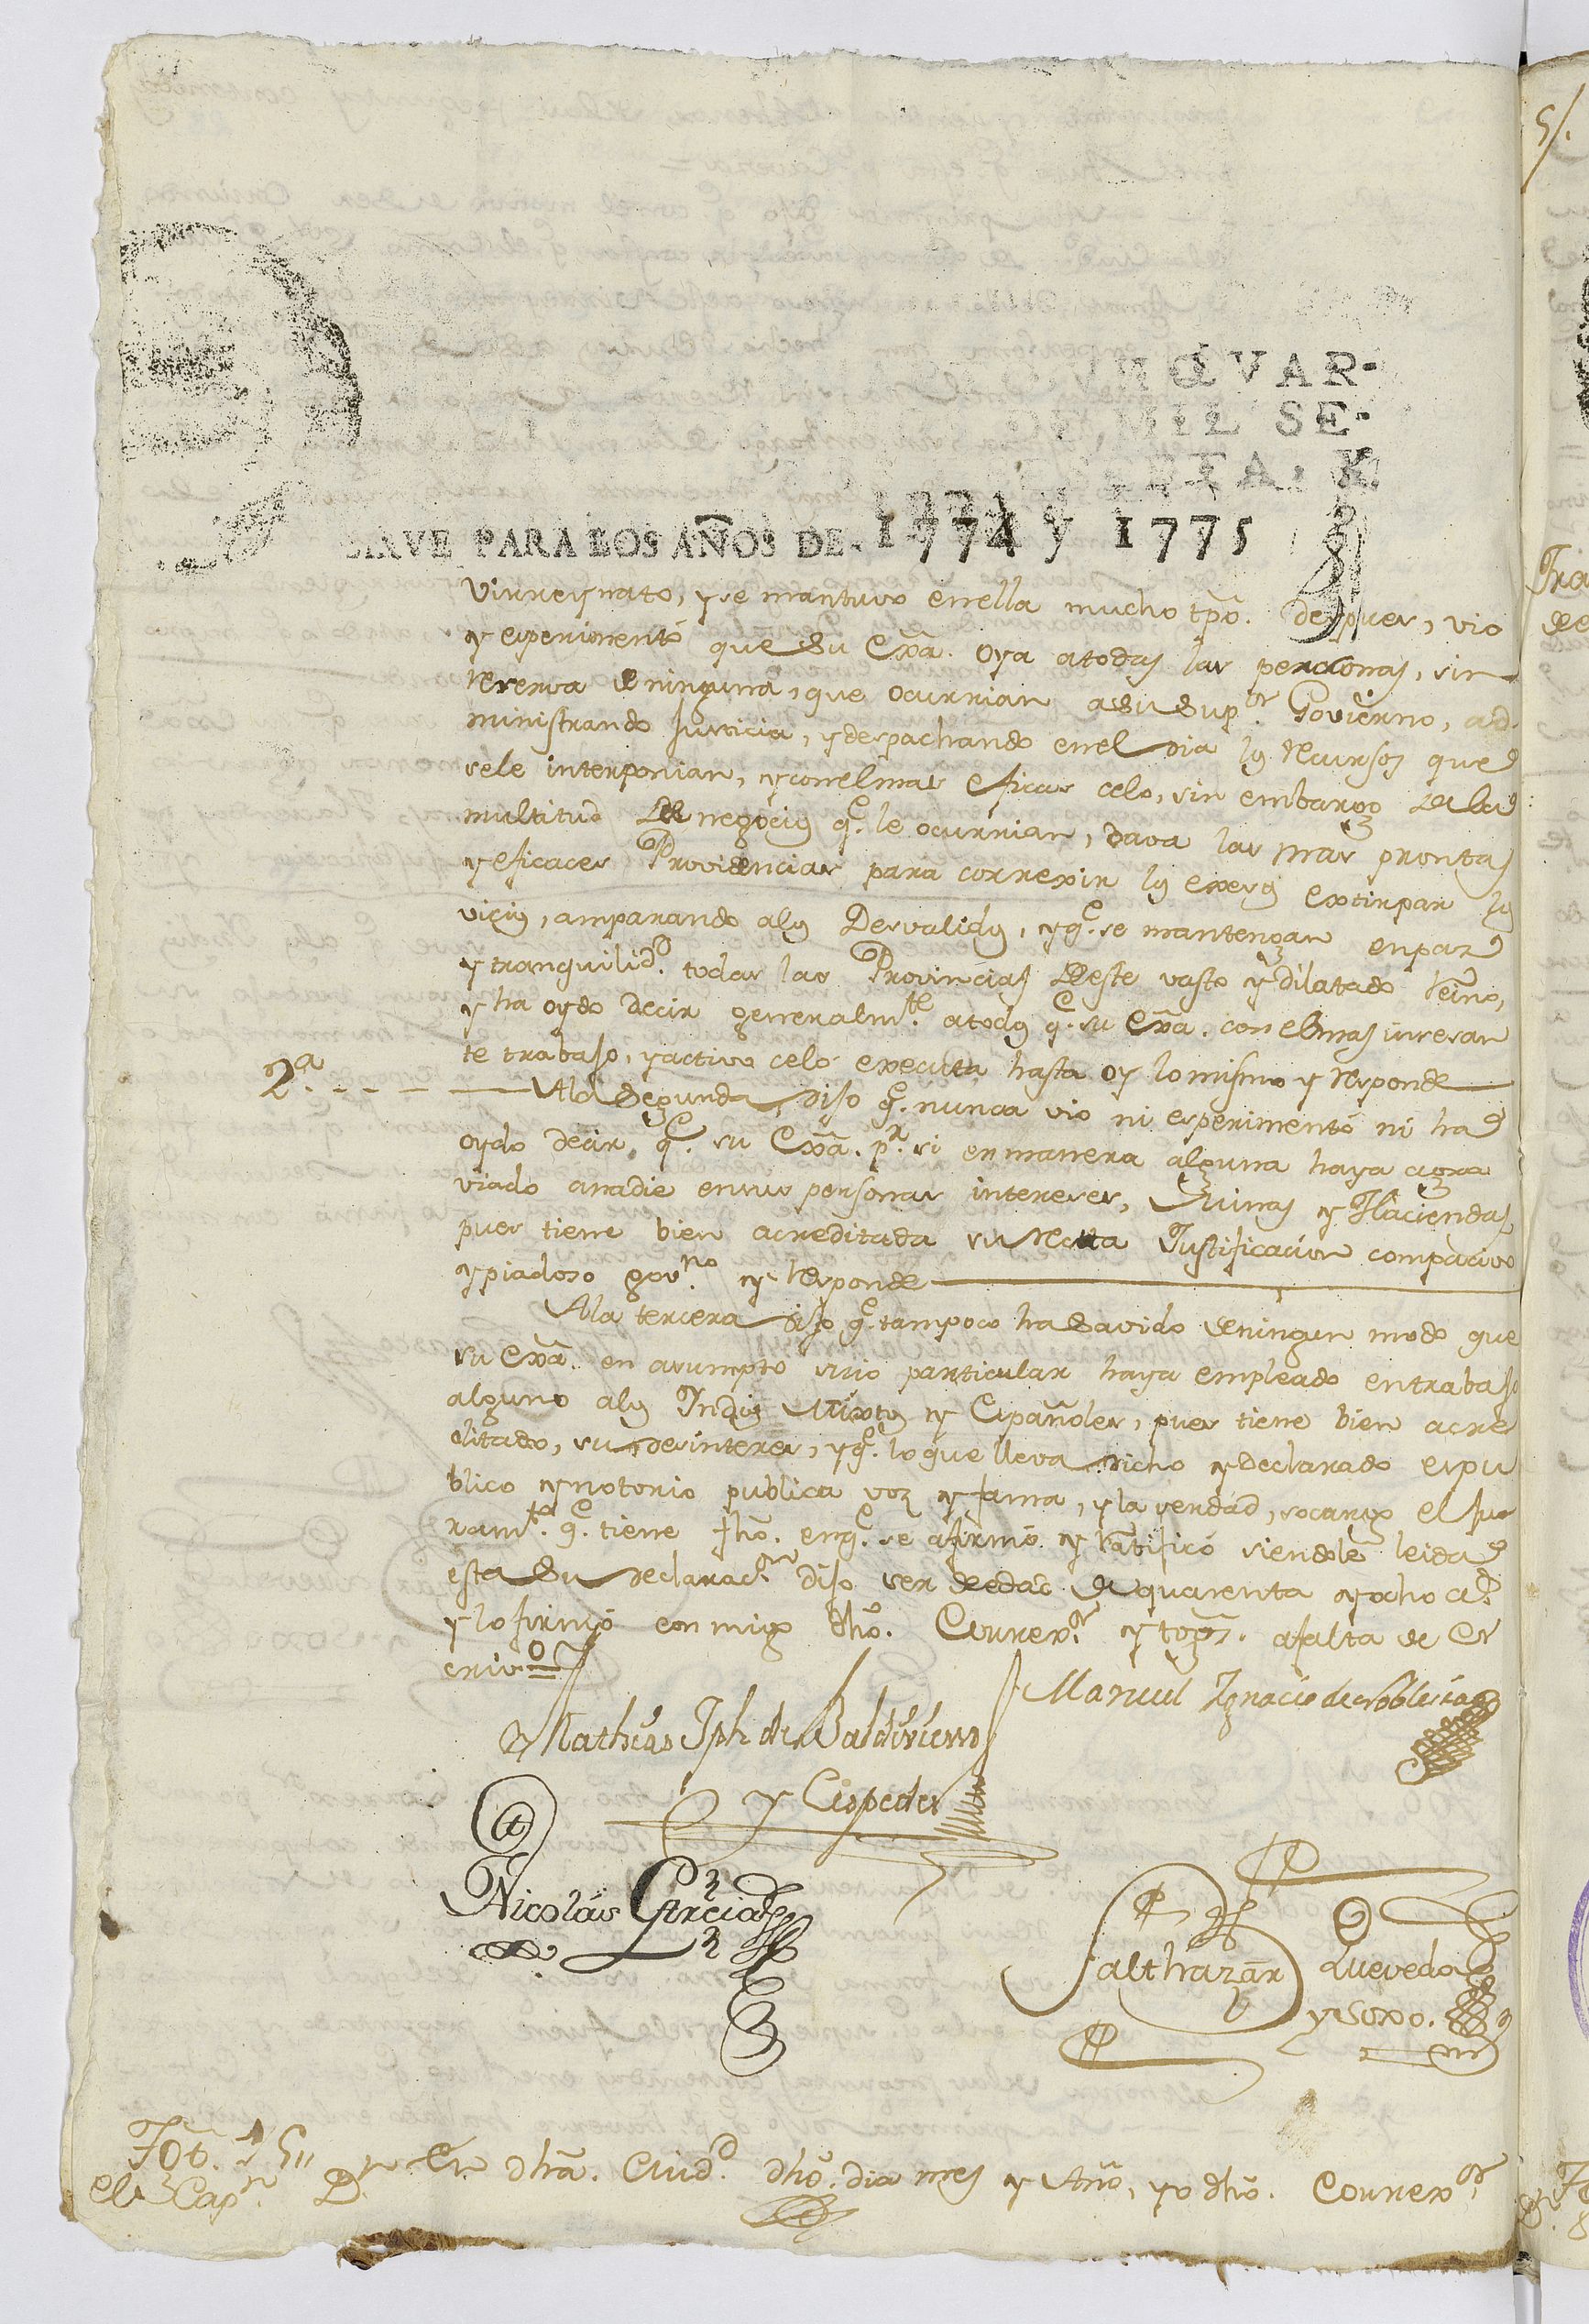 QVAR-
MIL SE-
TA, Y
SIRVE PARA LOS AÑOS DE. 1774 y 1775
Virreynato, y se mantuvo enella mucho tpõ. despues, vio
y esperimentó que su Exã. oya atodas las personas, sin
reserva de ninguna, que ocurrian asu supor. Govierno, ad-
ministrando Justicia, y despachando enel dia los recursos que
sele interponian, y conelmas eficas celo, sin embargo dela
multitud de negocios qe. le ocurrian, dava las mas prontas
y eficaces Providencias para correxir los exesos extirpar los
vicios, amparando alos Desvalidos, y qe. se mantengan enpaz
y tranquilidd. todas las Provincias deeste vasto y dilatado Reino,
y ha oydo decir generalmte. atodos qe. su Exã. con elmas incesan
te trabajo, y activo celo executa hasta oy lo mismo y responde
2a. - - - - Ala Segunda, dijo qe. nunca vio ni esperimentó ni ha
oydo decir, qe. su Exã. pr. si en manera alguna haya agra
viado anadie ensus personas intereses, Minas y Haciendas,
pues tiene bien acreditada su recta Justificacion compacivo
y piadoso govno. y responde
Ala tercera dijo qe. tampoco ha savido de ningun modo que
su Exã. en asumpto suio particular haya empleado entrabajo
alguno alos Indios Mixtos y Españoles, pues tiene bien acre
ditado, su desinteres, y qe. lo que lleva dicho y declarado espu
blico y notorio publica voz y fama, y la verdad, socargo el ju
ramto. qe. tiene fhõ. enqe. se afirmó y ratificó siendole leida
esta su declaracn. dijo ser deedad de quarenta y ocho as.
y lo firmó con migo dhõ. Correxor. y tgõs. afalta de Es
crivo.
Manuel Ignacio de Noblecia
Mathias Jph de Baldivieso
y Cespedes
Nicolás Garcia
Balthazar Quevedo
y Soxo.
Tõt. 5
el Capn. Dn. En dhã. Ciudd. dhõ. dia mes y Año, yo dhõ. Correxor.